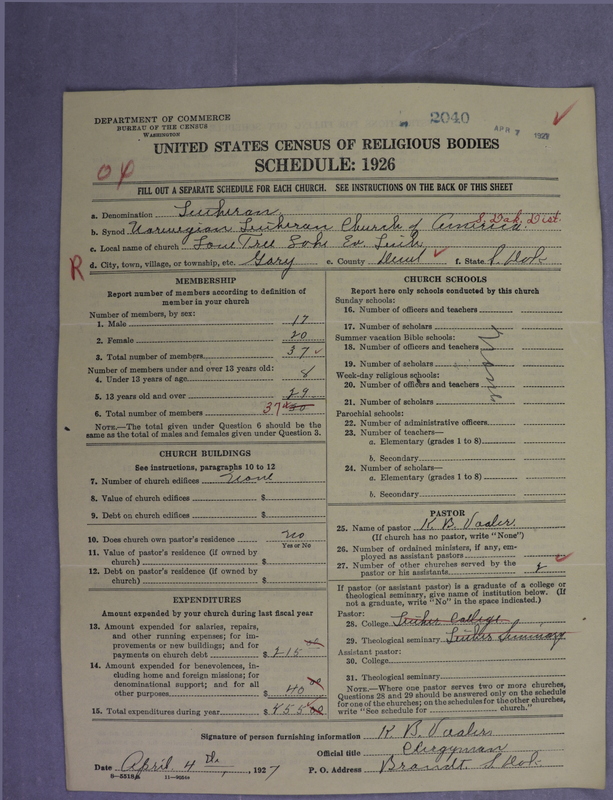 DEPARTMENT OF COMMERCE
BUREAU OF THE CENSUS
WASHINGTON
2040
APR 7 1927
UNITED STATES CENSUS OF RELIGIOUS BODIES
SCHEDULE: 1926
FILL OUT A SEPARATE SCHEDULE FOR EACH CHURCH. SEE INSTRUCTIONS ON THE BACK OF THIS SHEET
a. Denomination Lutheran
b. Synod Norwegian Lutheran Church of America. S. Dak. Dist.
c. Local name of church Lone Tree Lake Ev. Luth.
d. City, town, village, or township, etc. Gary e. County Deuel f. State S. Dak
R
MEMBERSHIP
Report number of members according to definition of
member in your church
Number of members, by sex:
1. Male 17
2. Female 20
3. Total number of members 37
Number of members under and over 13 years old:
4. Under 13 years of age 8
5. 13 years old and over 29
6. Total number of members 37
NOTE.—The total given under Question 6 should be
same as the total of males and females given under Question 3.
CHURCH BUILDINGS
See instructions, paragraphs 10 to 12
7. Number of church edifices none
8. Value of church edifices $
9. Debt on church edifices $
10. Does church own pastor's residence no
Yes or No
11. Value of pastor's residence (if owned by
church) $
12. Debt on pastor's residence (if owned by
church) $
EXPENDITURES
Amount expended by your church during last fiscal year
13. Amount expended for salaries, repairs,
and other running expenses; for im-
provements or new buildings; and for
payments on church debt $ 215
14. Amount expended for benevolences, in-
cluding home and foreign missions; for
denominational support; and for all
other purposes 40
15. Total expenditures during year $
CHURCH SCHOOLS
Report here only schools conducted by this church
Sunday schools:
16. Number of officers and teachers
17. Number of scholars
Summer vacation Bible schools:
18. Number of officers and teachers
19. Number of scholars
Week-day religious schools:
20. Number of officers and teachers
21. Number of scholars
none
Parochial schools:
22. Number of administrative officers
23. Number of teachers—
a. Elementary (grades 1 to 8)
b. Secondary
24. Number of scholars—
a. Elementary (grades 1 to 8)
b. Secondary
PASTOR
25. Name of pastor K. B. Vaaler
(If church has no pastor, write "None")
26. Number of ordained ministers, if any, em-
ployed as assistant pastors
27. Number of other churches served by the
pastor or his assistants
If pastor (or assistant pastor) is a graduate of a college or
theological seminary, give name of institution below. (If
not a graduate, write "No" in the space indicated.)
Pastor:
28. College Luther College
29. Theological seminary Luther Seminary
Assistant pastor:
30. College
31. Theological seminary
NOTE.—Where one pastor serves two or more churches,
Questions 28 and 29 should be answered only on the schedule
for one of the churches; on the schedules for the other churches,
write "See schedule for church."
Signature of person furnishing information K. B. Vaaler
Official title Clergyman
Date April 4th, 1927 P. O. Address Brandt, S. Dak